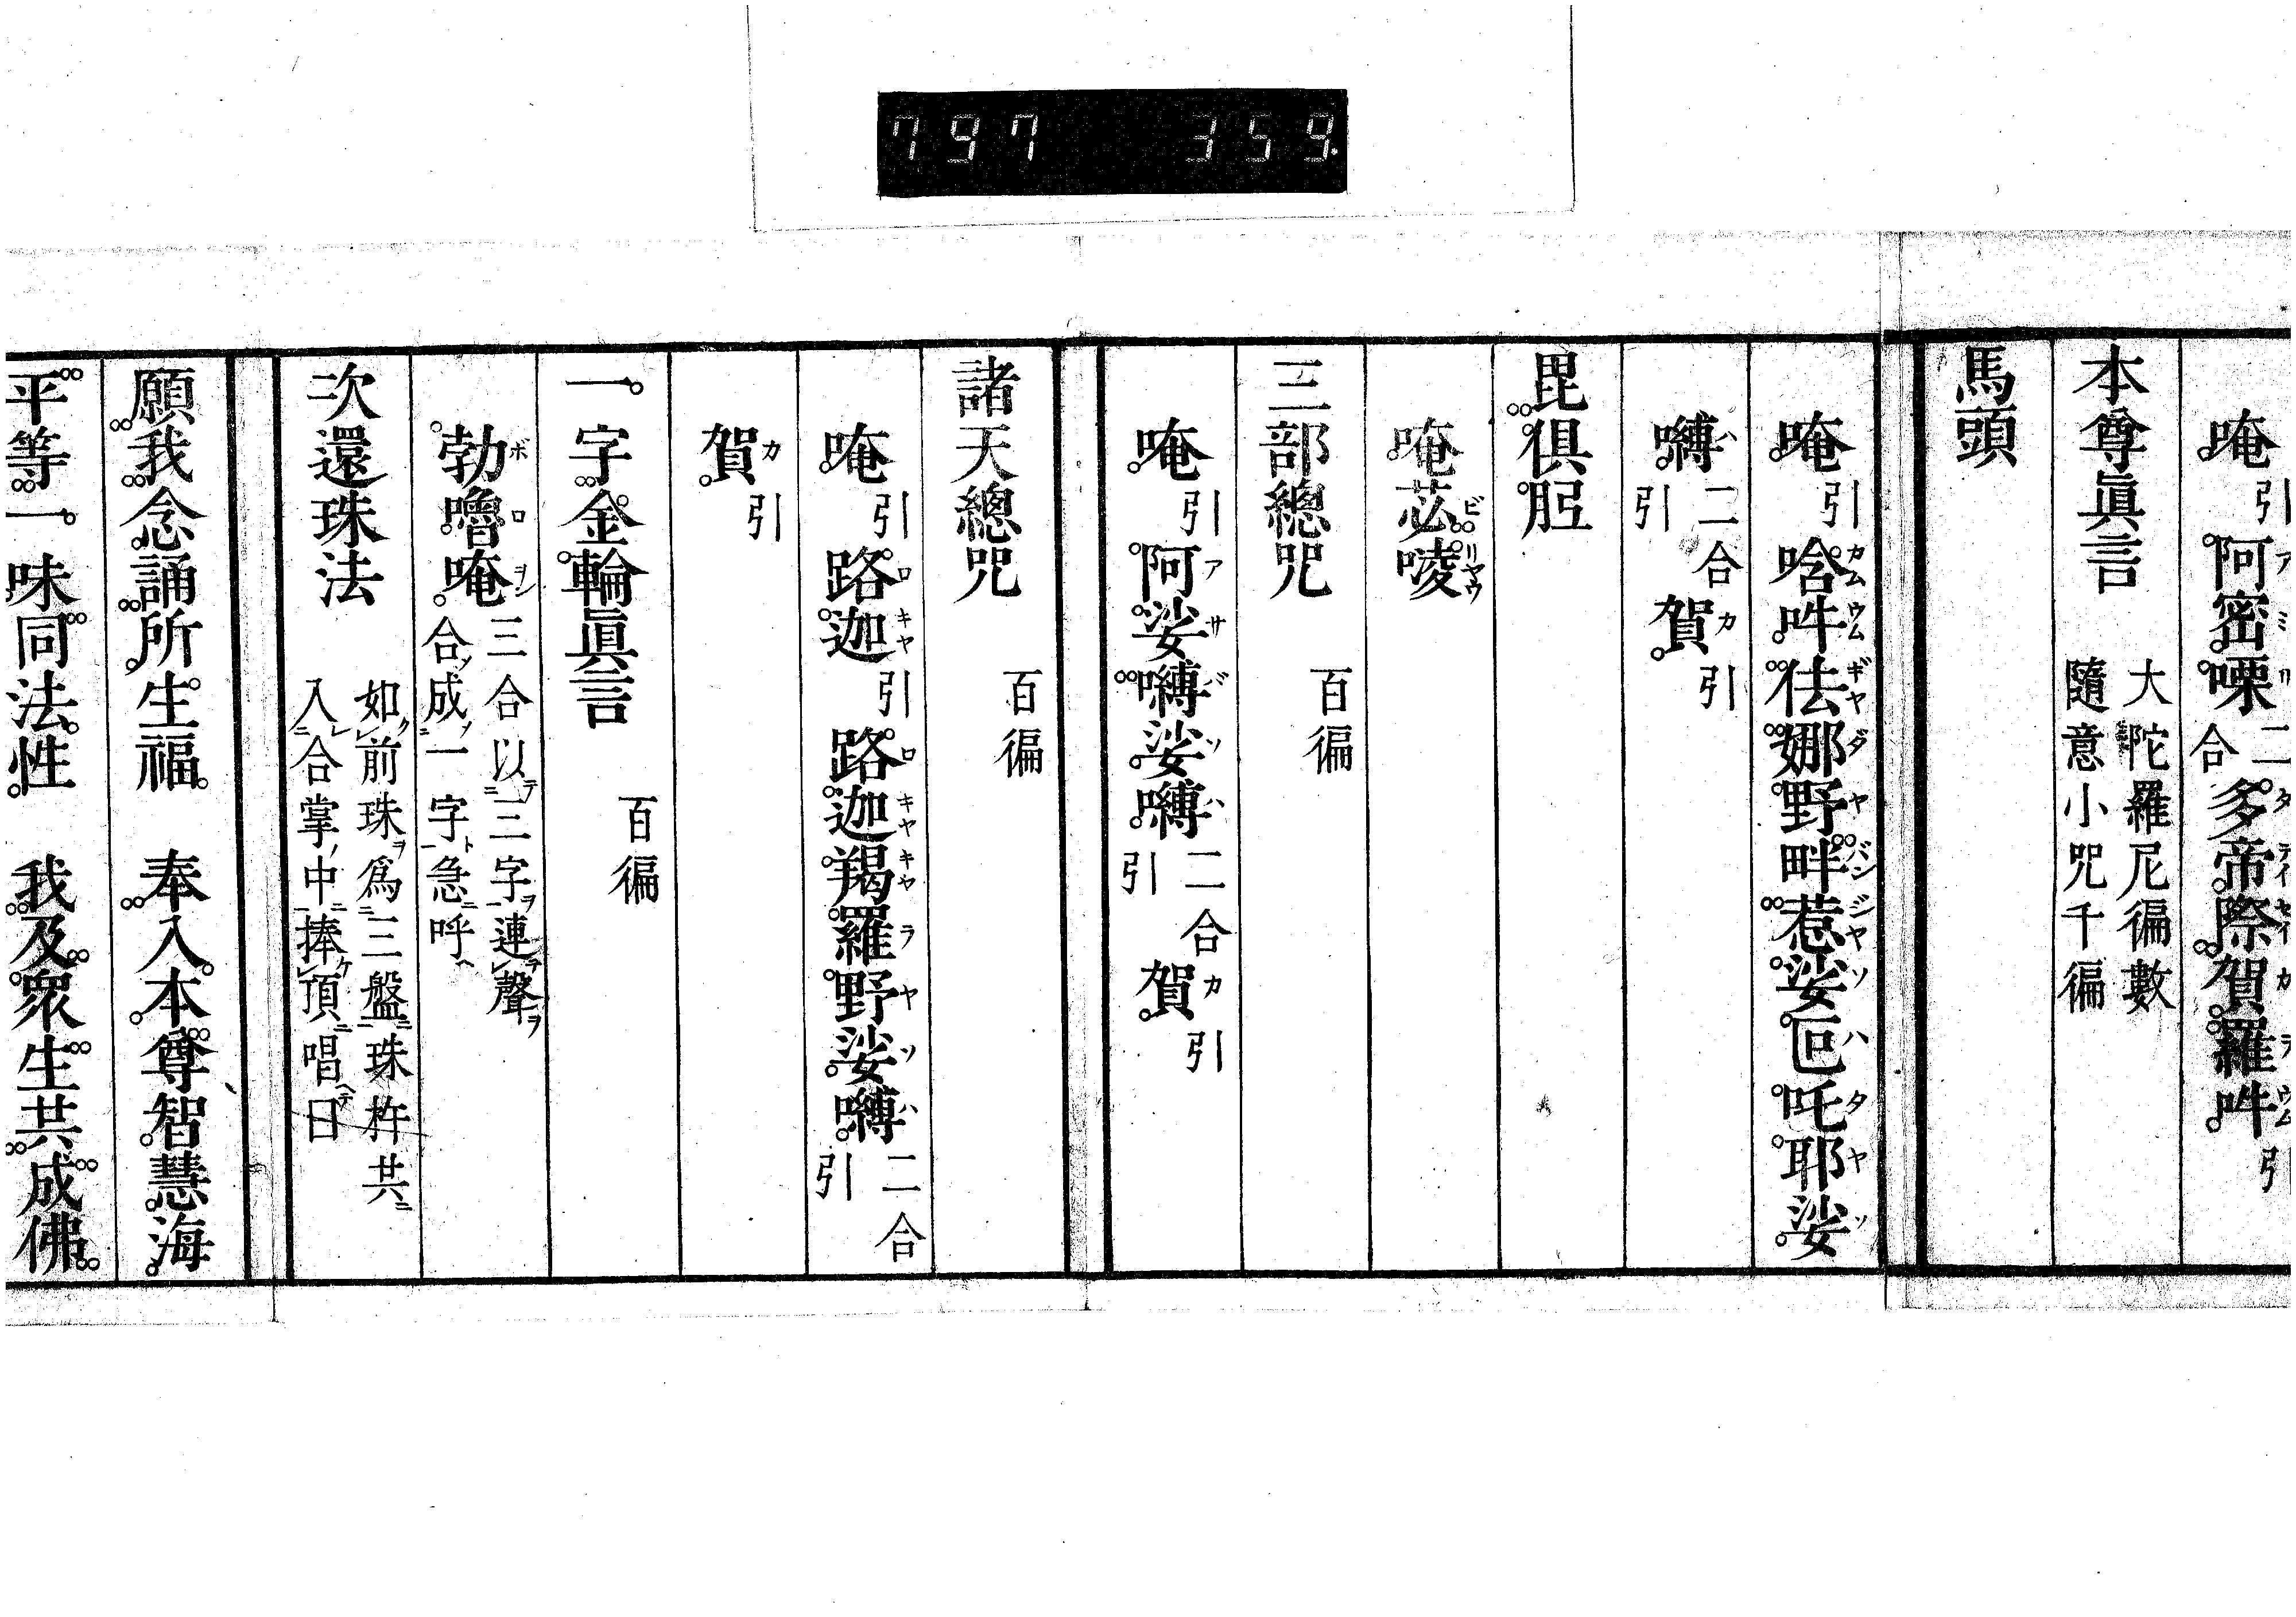 797 359
唵引阿密㗚二合多帝際賀羅吽引
本尊眞言 大陀羅尼徧數隨意小咒千徧
馬頭
唵引唅吽佉娜野畔惹娑叵吒耶娑
嚩二合引賀引
毘俱胝
唵苾㖫
三部總咒 百徧
唵引阿娑嚩娑嚩二合引賀引
諸天總咒 百徧
唵引路迦引路迦羯羅野娑嚩二合引
賀引
一字金輪眞言 百徧
勃嚕唵三合以二字連聲合成一字急呼
次還珠法 如前珠爲三盤珠杵共入合掌中捧頂唱曰
願我念誦所生福 奉入本尊智慧海
平等一味同法性 我及衆生共成佛